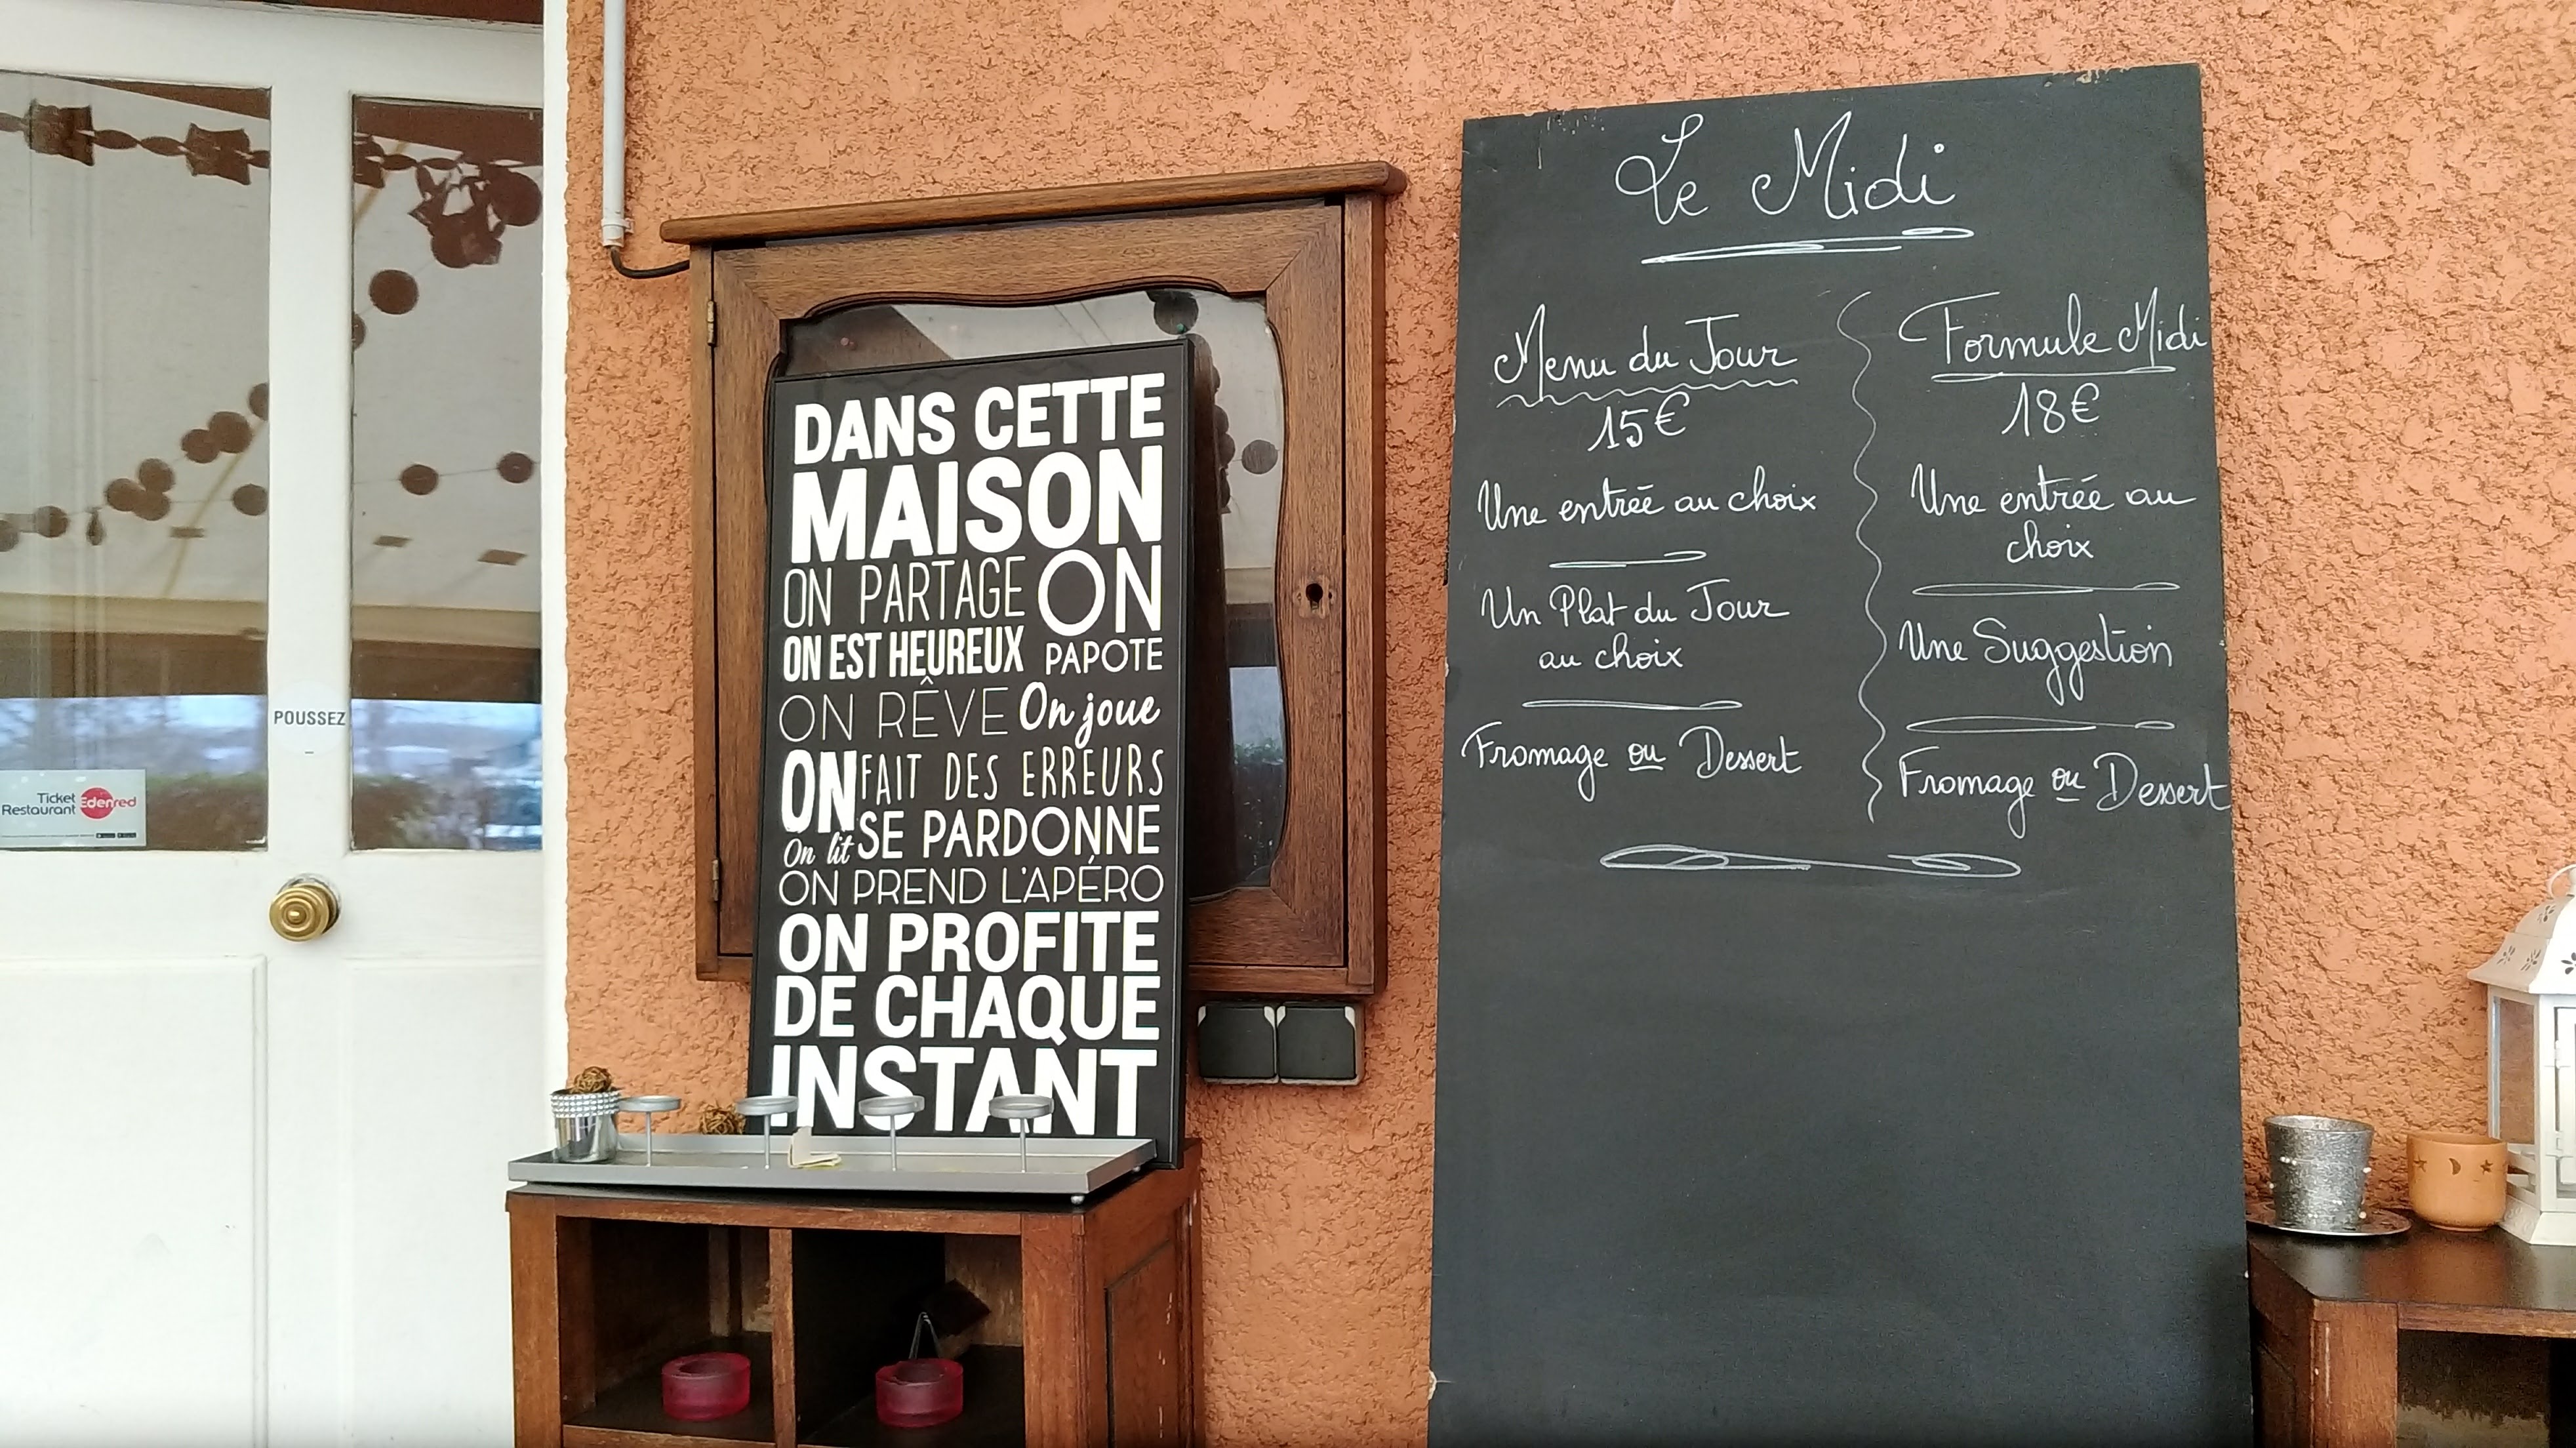 POUSSEZ
Ticket
Restaurant Edenred
DANS CETTE
MAISON
ON PARTAGE ON
ON EST HEUREUX PAPOTE
ON RÊVE On joue
ON FAIT DES ERREURS
On lit SE PARDONNE
ON PREND L'APÉRO
ON PROFITE
DE CHAQUE
INSTANT
Le Midi
Menu du Jour
15€
Une entrée au choix
Un Plat du Jour
au choix
Fromage ou Dessert
Formule Midi
18€
Une entrée au
choix
Une Suggestion
Fromage ou Dessert